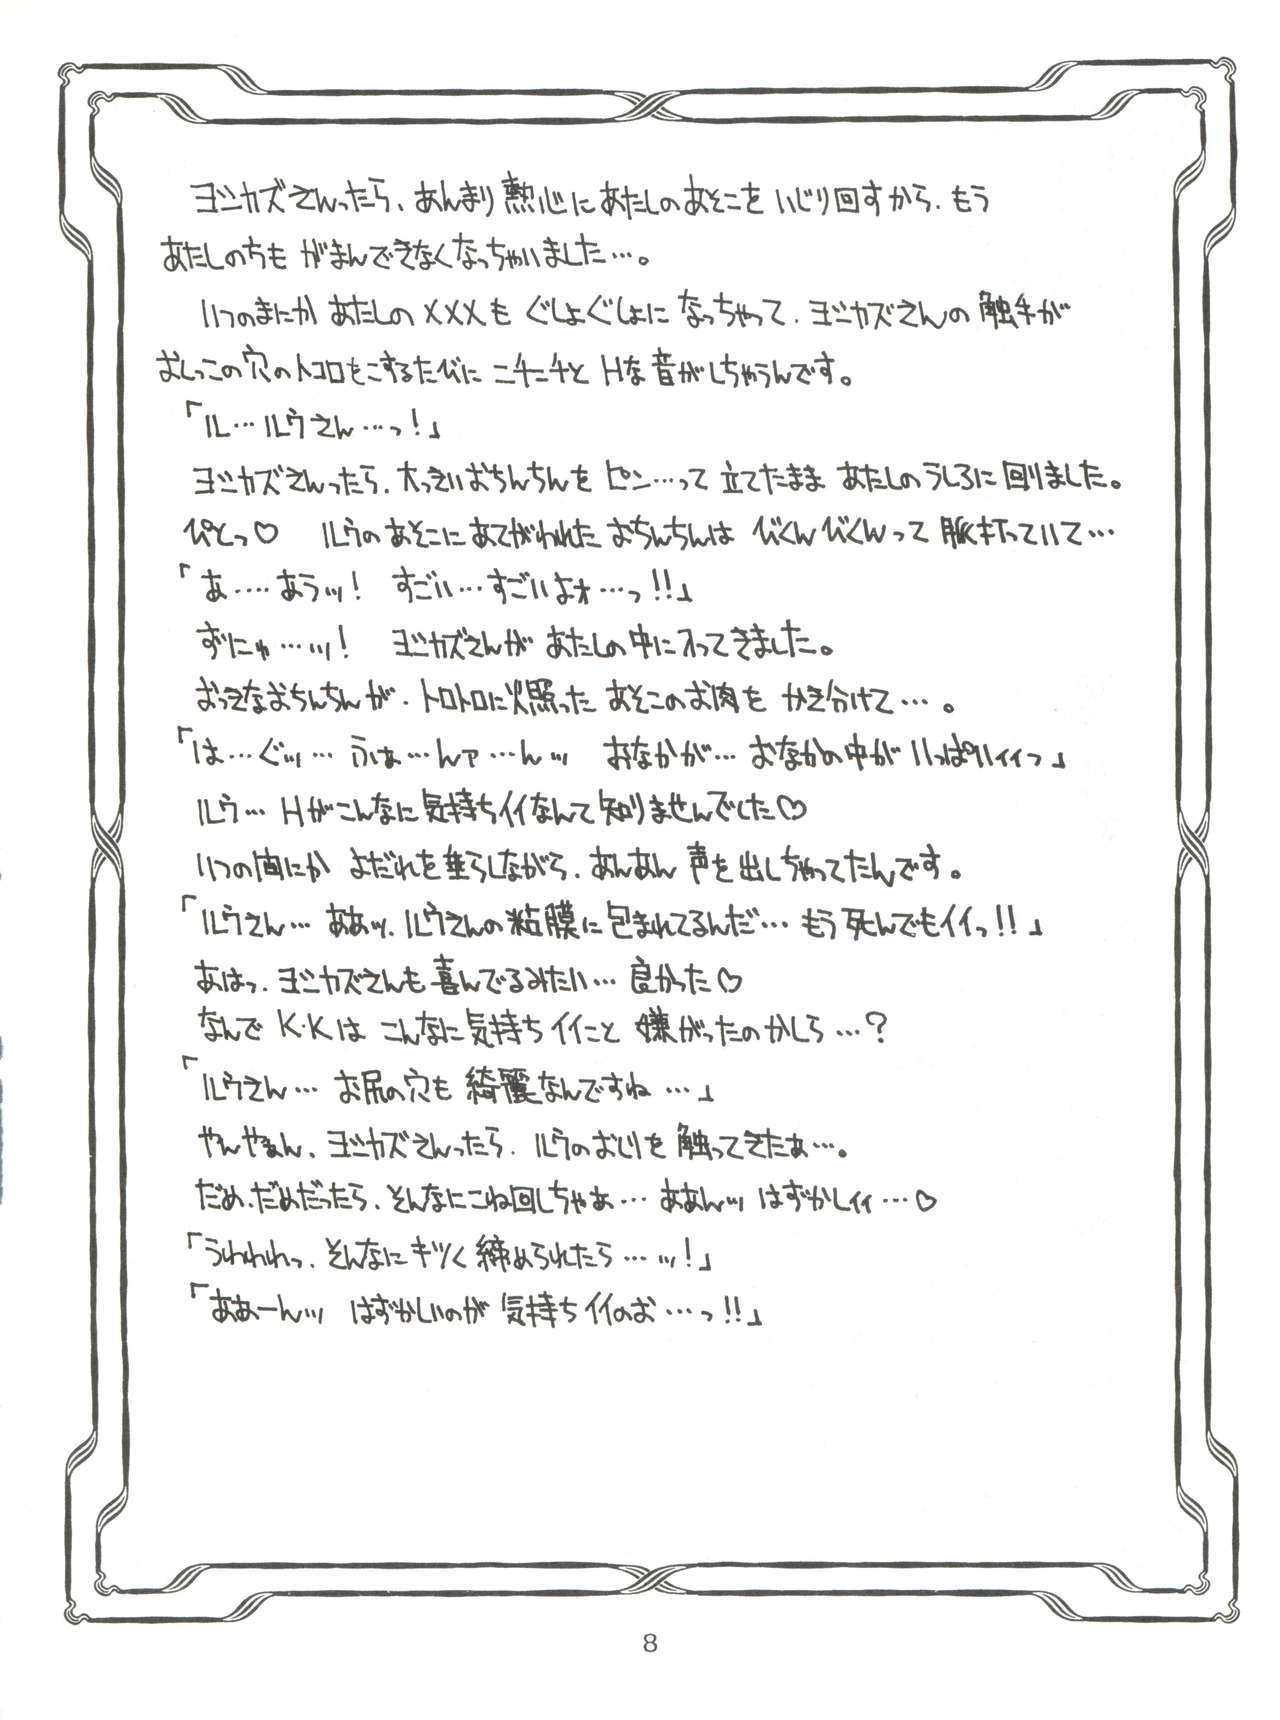 ヨシカズさんったら、あんまり熱心にあたしのあそこをいじり回すから、もう
あたしのちも がまんできなくなっちゃいました…。
いつのまにか あたしの×××も ぐしょぐしょに なっちゃって、ヨシカズさんの 触手が
おしっこの穴のトコロをこするたびに ニチニチと Hな音がしちゃうんです。
「ル…ルウさん…っ!」
ヨシカズさんったら、大っきいおちんちんを ピン…って 立てたまま あたしのうしろに回りました。
ぴとっ♡ ルウのあそこにあてがわれた おちんちんは びくんびくんって 脈打っていて…
「あ‥‥あうッ! すごい…すごいよォ…っ!!」
ずにゅ…ッ! ヨシカズさんが あたしの中に入ってきました。
おっきなおちんちんが、トロトロに火照った あそこのお肉を かき分けて…。
「は…ぐッ… ふぁ…んァ…んッ おなかが… おなかの中が いっぱいィィっ」
ルウ… Hがこんなに気持ちイイなんて知りませんでした♡
いつの間にか よだれを垂らしながら、あんあん 声を出しちゃってたんです。
「ルウさん… ああッ、ルウさんの粘膜に包まれてるんだ… もう 死んでもイイっ!!」
あはっ、ヨシカズさんも喜んでるみたい… 良かった♡
なんで K・Kは こんなに気持ちイイこと 嫌がったのかしら…?
「ルウさん… お尻の穴も 綺麗なんですね…」
やんやぁん、ヨシカズさんったら、ルウのおしりを 触ってきたぁ…。
だめ、だめだったら、そんなにこね回しちゃぁ… ああんッ はずかしィィ…♡
「うわわわっ、そんなにキツく 締められたら…ッ!」
「ああーんッ はずかしいのが 気持ちイイのお…っ!!」
8